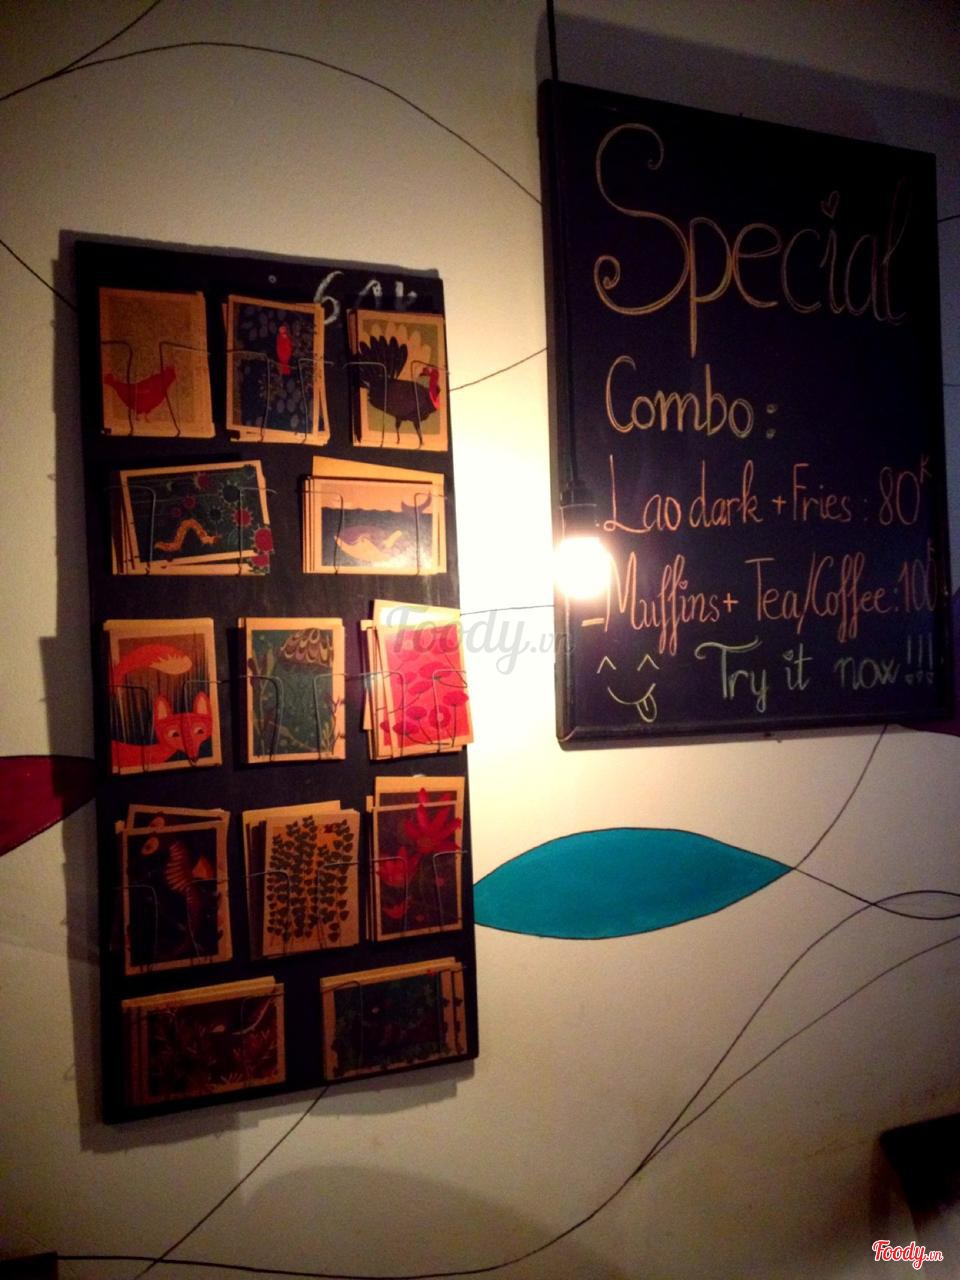 Special
Combo:
- Lao dark + Fries: 80K
- Muffins + Tea/Coffee: 100K
Try it now!!!
Foody.vn
Foody.vn